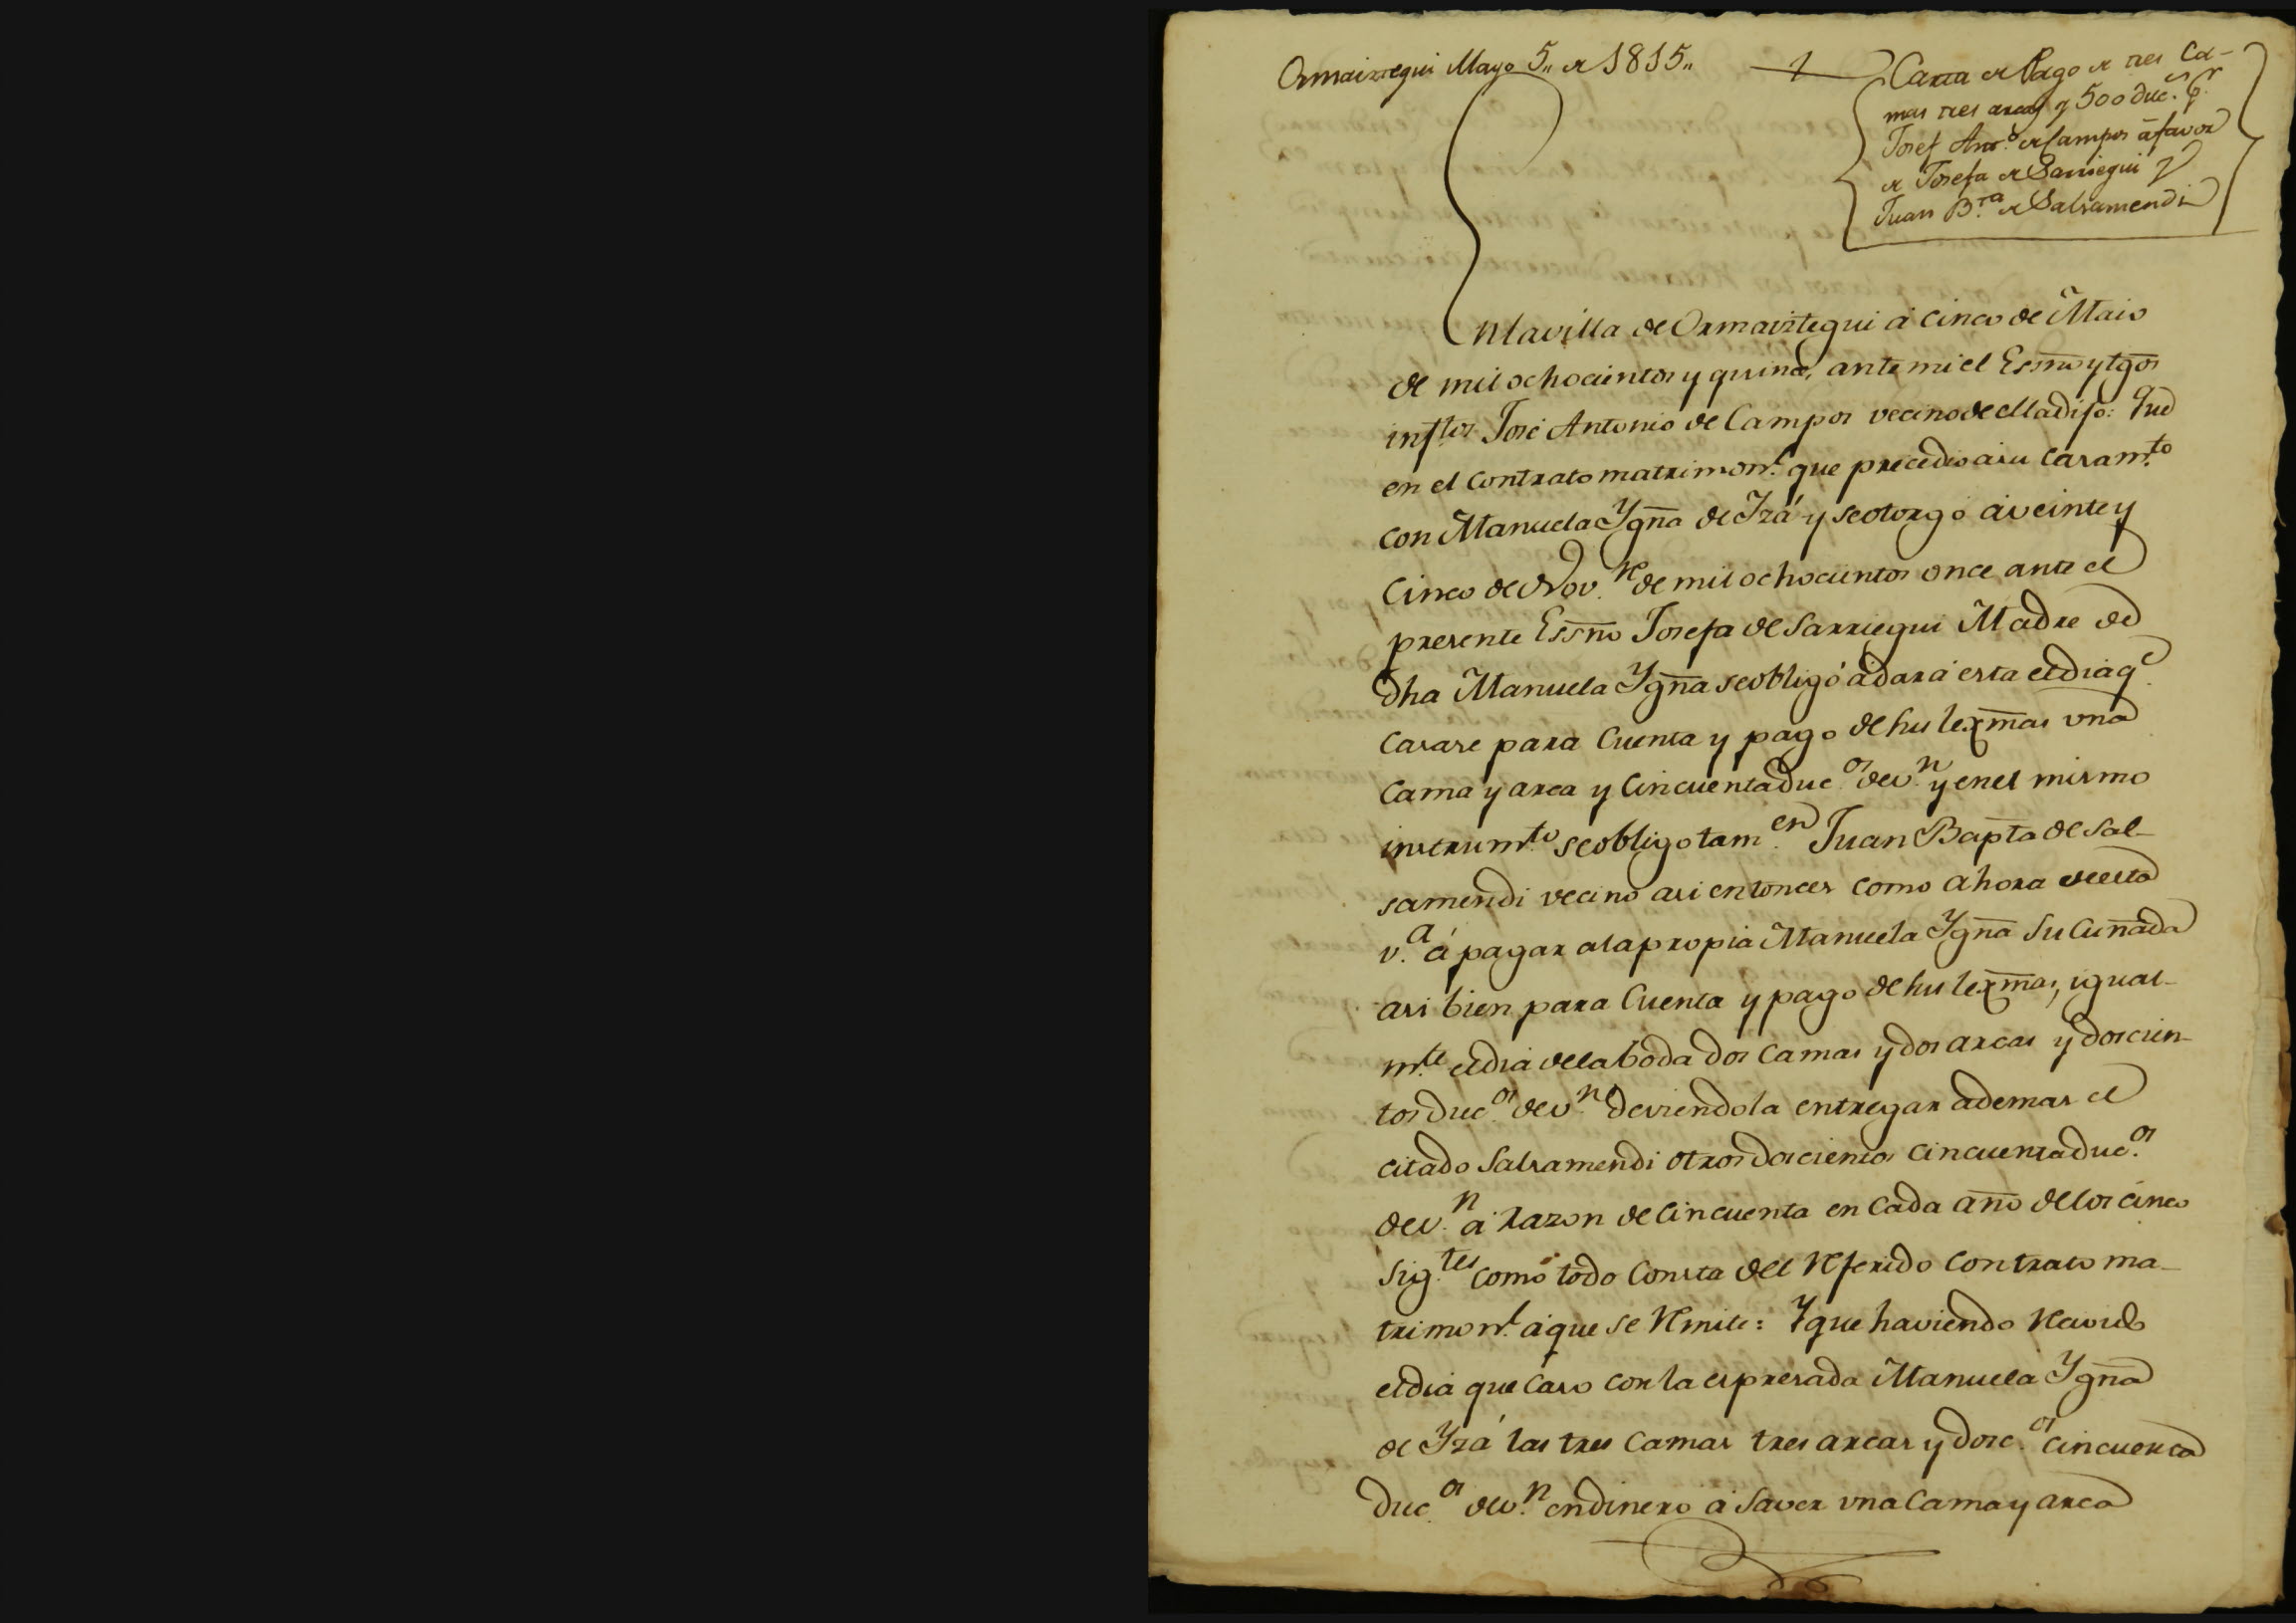 Ormaiztegui Mayo 5,, de 1815,,
1
Carta de Pago de tres Ca-
mas tres arcas y 500 duc.s p.r
Josef Ant.o de Campos á favor
de Josefa de Sarriegui y
Juan B.ta de Salsamendi
En la villa de Ormaiztegui á cinco de Maio
de mil ochocientos y quince, ante mi el Essno y tgos
inf.tos José Antonio de Campos vecino de ella dijo: Que
en el contrato matrimon.l que precedio a su casam.to
con Manuela Ygña de Yzá y se otorgó á veinte y
cinco de Nov.re de mil ochocientos once ante el
presente Essno Josefa de Sarriegui Madre de
dha Manuela Ygña se obligó á dar á esta el dia q.e
casase para cuenta y pago de sus lexmas una
cama y arca y cincuenta duc.os de v.n y en el mismo
instrum.to se obligo tam.en Juan Bapta de Sal-
samendi vecino asi entonces como ahora de esta
v.a á pagar a la propia Manuela Ygña su cuñada
asi bien para cuenta y pago de sus lexmas, igual-
m.te el dia de la boda dos camas y dos arcas y doscien-
tos duc.os de v.n deviendola entregar ademas el
citado Salsamendi otros doscientos cincuenta duc.os
de v.n á razon de cincuenta en cada año de los cinco
sig.tes como todo consta del referido contrato ma-
trimon.l á que se remite: Y que haviendo recivido
el dia que caso con la espresada Manuela Ygña
de Yzá las tres camas tres arcas y dosc.os cincuenta
duc.os de v.n en dinero á saver una cama y arca